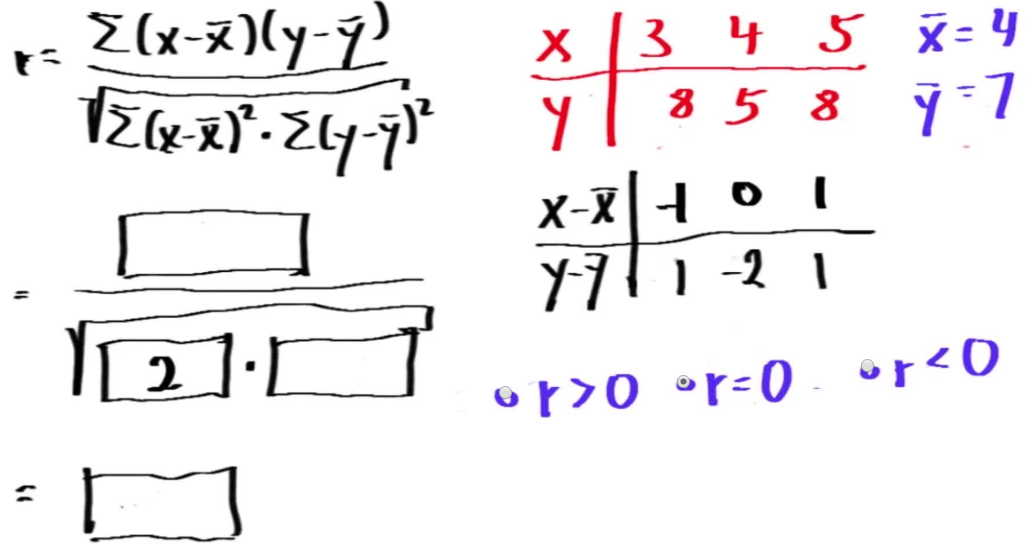 r = Σ(x-x̄)(y-ȳ)
√Σ(x-x̄)²·Σ(y-ȳ)²
x 3 4 5
y 8 5 8
x̄ = 4
ȳ = 7
x-x̄ -1 0 1
y-ȳ 1 -2 1
=
√ 2 ·
r>0 r=0 r<0
=